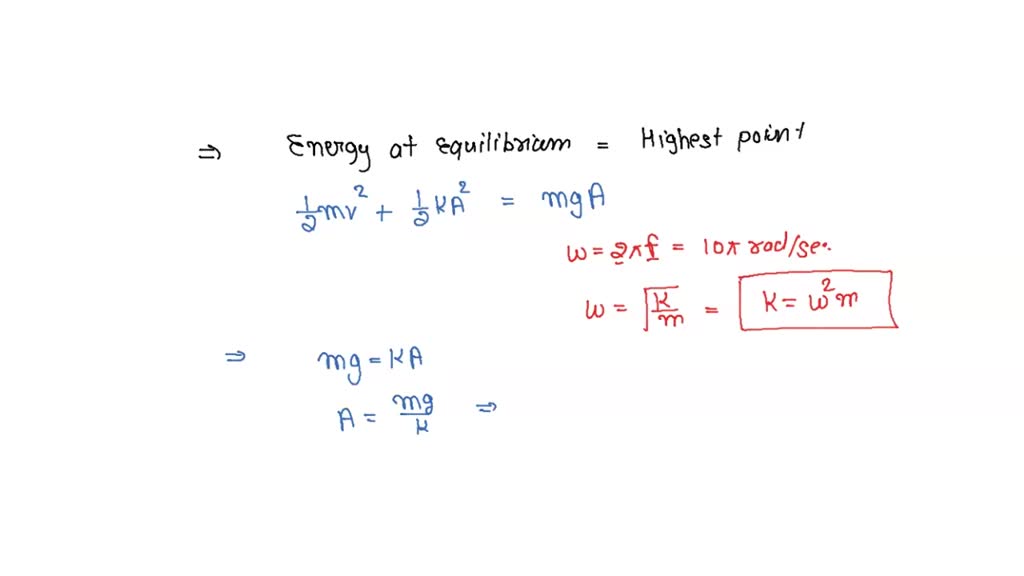 ⇒ Energy at Equilibrium = Highest point
½mv² + ½KA² = mgA
ω = 2πf = 10π rad/sec.
ω = √(K/m) = K = ω²m
⇒ mg = KA
A = mg/k ⇒